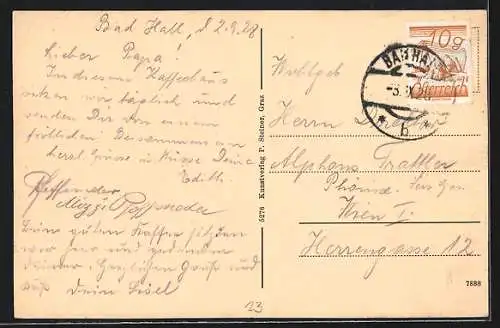 Bad Hall, d 2.9.28
Lieber Papa!
In diesem Kaffeehaus
sitzen wir täglich und
senden Dir von einem
fröhlichen Beisammensein
herzl. Grüsse u. Küsse Deine
Edith
Mizzi
Beim guten Kaffee sitzen
wir hier und gedenken
Deiner. Herzlichen Gruß und
Kuß Dein Lisel
23
5276 Kunstverlag P. Steiner, Graz
10g
Österreich
BAD HALL
-3.
* b *
Wohlgeb
Herrn
Alphons Trattler
Wien I.
Herrengasse 12
7888